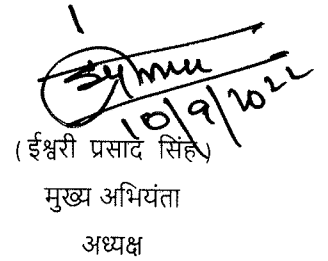 10/9/2022
(ईश्वरी प्रसाद सिंह)
मुख्य अभियंता
अध्यक्ष